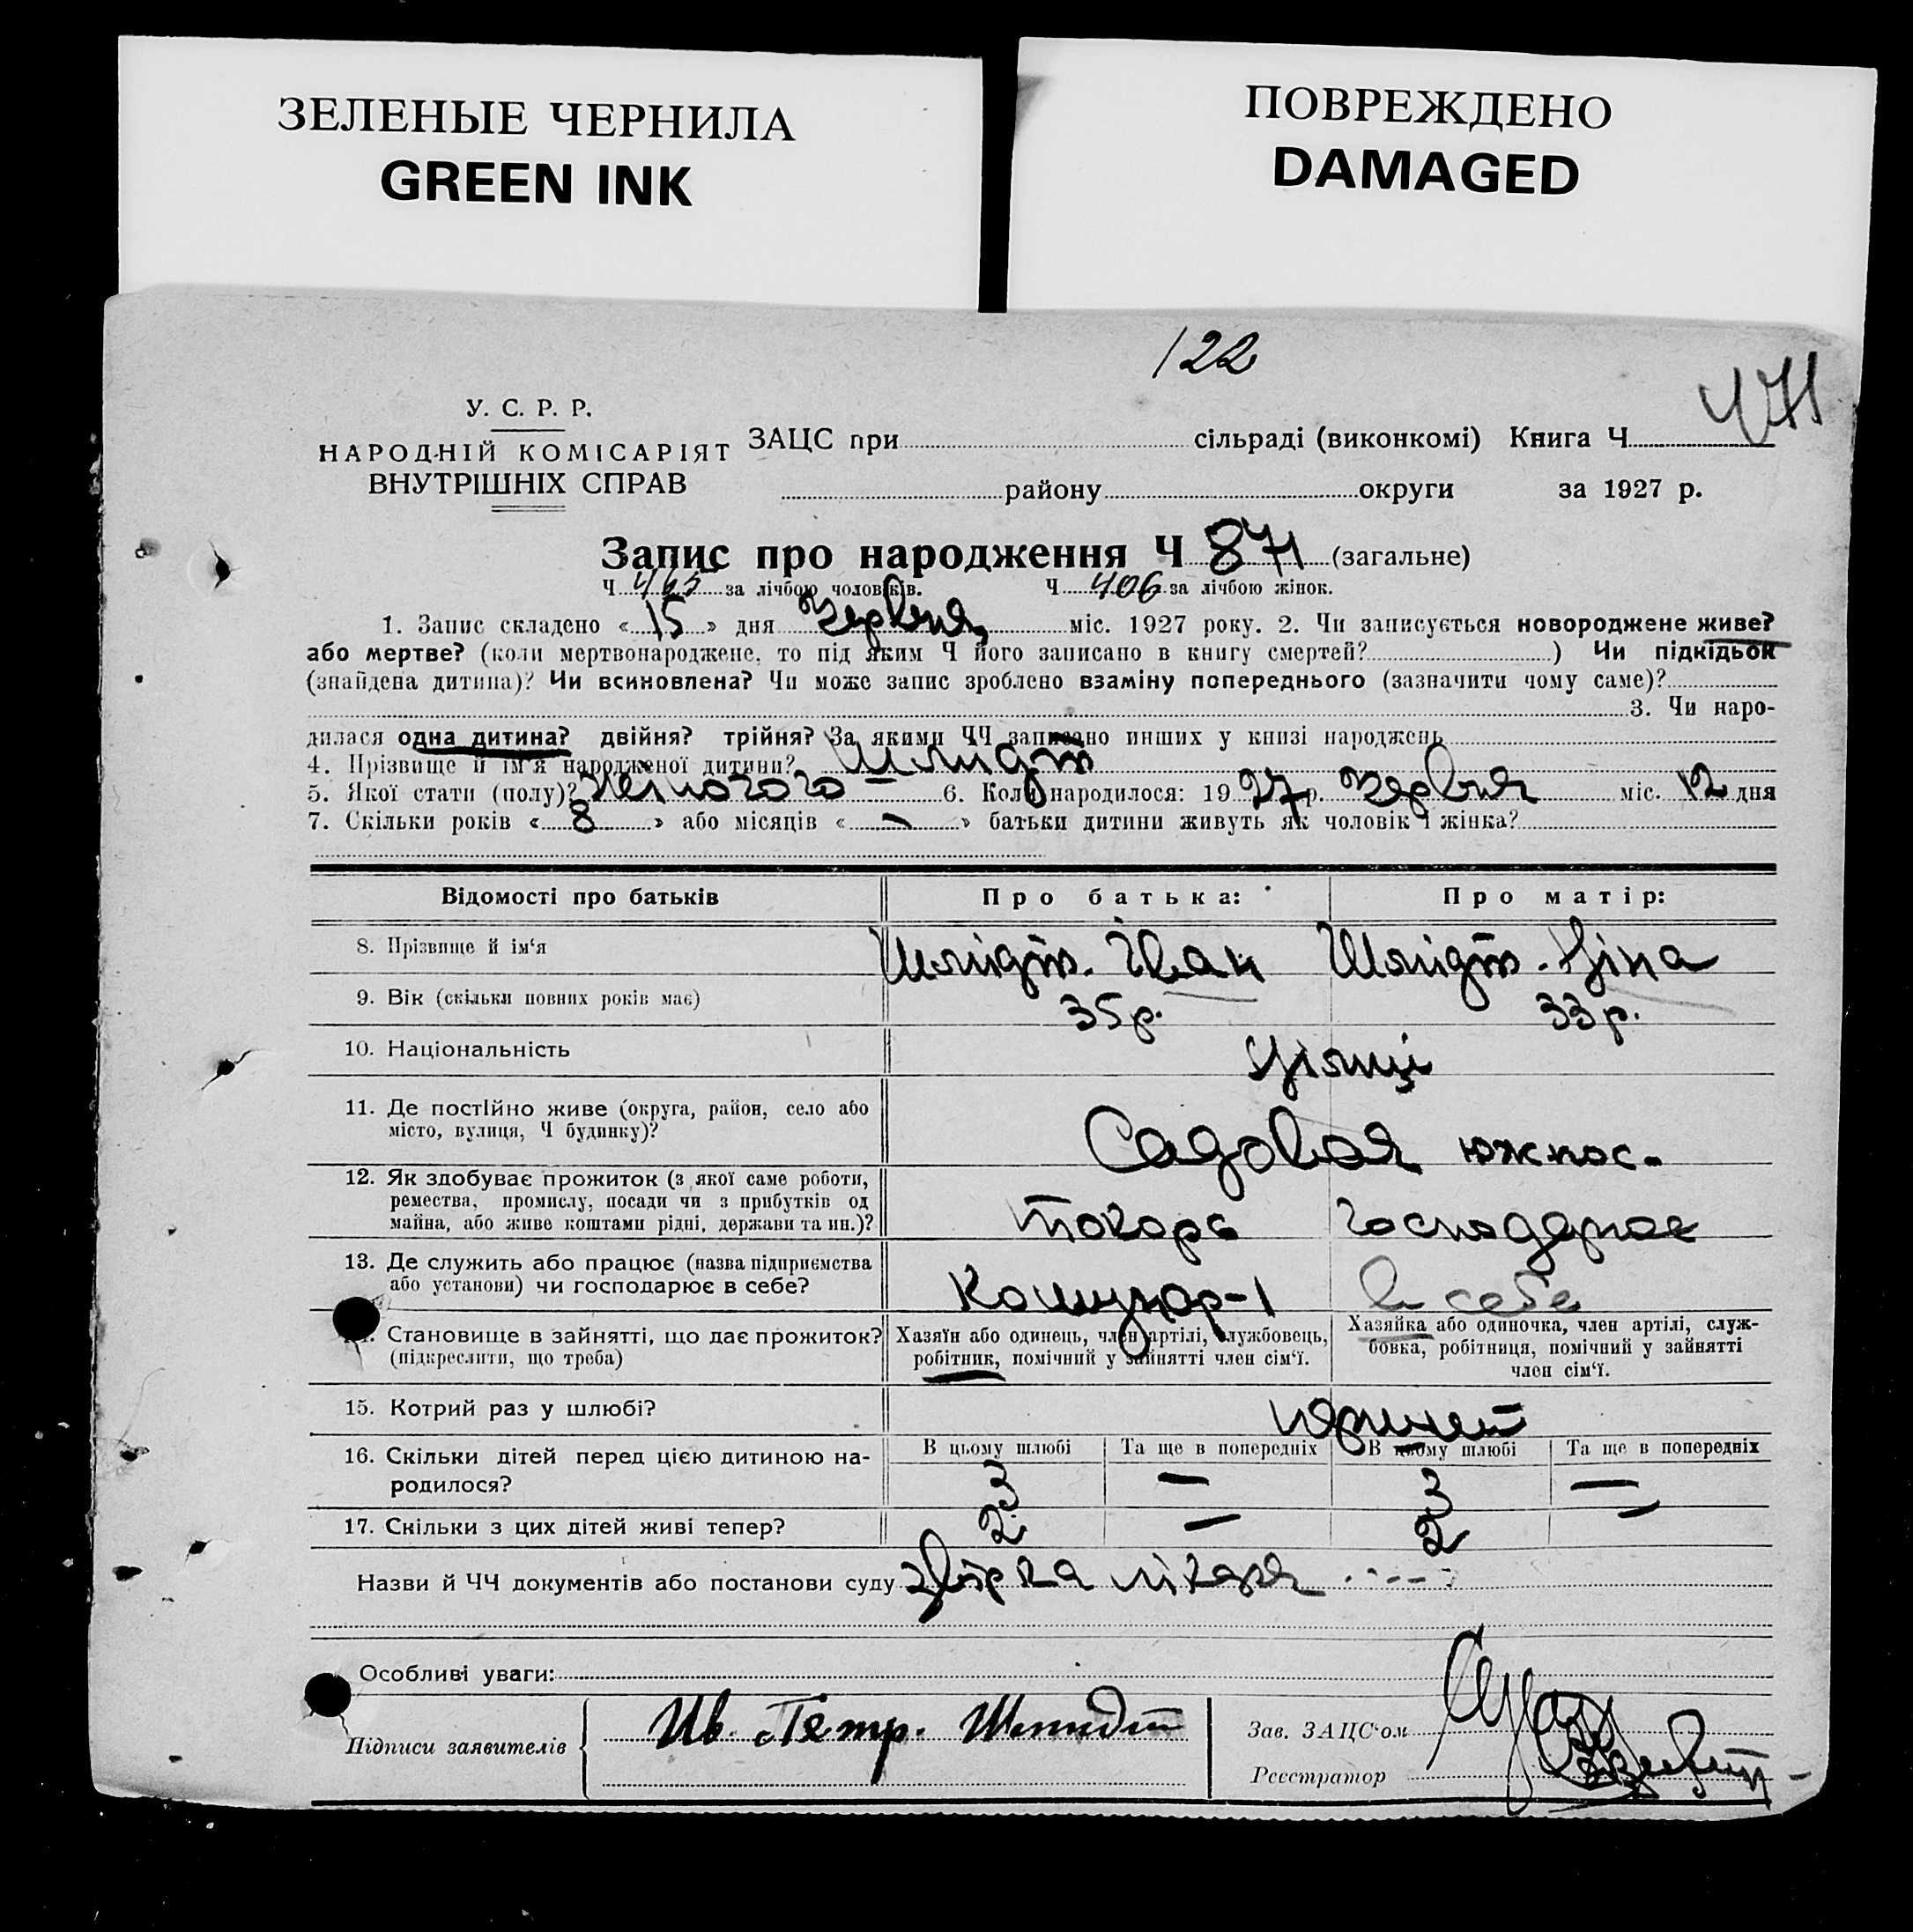 ЗЕЛЕНЫЕ ЧЕРНИЛА
GREEN INK
ПОВРЕЖДЕНО
DAMAGED
122
471
У. С. Р. Р.
НАРОДНІЙ КОМІСАРІЯТ
ВНУТРІШНІХ СПРАВ
ЗАЦС при сільраді (виконкомі) Книга Ч
району округи за 1927 р.
Запис про народження Ч 871 (загальне)
Ч 465 за лічбою чоловіків. Ч 406 за лічбою жінок.
1. Запис складено «15» дня Червня міс. 1927 року. 2. Чи записується новороджене живе?
або мертве? (коли мертвонароджене, то під яким Ч його записано в книгу смертей? ) Чи підкідьок
(знайдена дитина)? Чи всиновлена? Чи може запис зроблено взаміну попереднього (зазначити чому саме)?
3. Чи наро-
дилася одна дитина? двійня? трійня? За якими ЧЧ записано инших у книзі народжень
4. Прізвище й ім'я народженої дитини? Шмидт
5. Якої стати (полу)? жіночого — 6. Коли народилося: 1927 р. Червня міс. 12 дня
7. Скільки років «8» або місяців «—» батьки дитини живуть як чоловік і жінка?
Відомості про батьків Про батька: Про матір:
8. Прізвище й ім'я Шмідт. Іван Шмідт. Ніна
9. Вік (скільки повних років має) 35 р. 33 р.
10. Національність Німці
11. Де постійно живе (округа, район, село або
місто, вулиця, Ч будинку)? Садовая южнос.
12. Як здобуває прожиток (з якої саме роботи,
ремества, промислу, посади чи з прибутків од
майна, або живе коштами рідні, держави та ин.)? токарь господарює
13. Де служить або працює (назва підприємства
або установи) чи господарює в себе? Комунар-1 в себе
Становище в зайнятті, що дає прожиток? Хазяїн або одинець, член артілі, службовець, Хазяйка або одиночка, член артілі, служ-
(підкреслити, що треба) робітник, помічний у зайнятті член сім'ї. бовка, робітниця, помічний у зайнятті
член сім'ї.
15. Котрий раз у шлюбі? первий
16. Скільки дітей перед цією дитиною на- В цьому шлюбі Та ще в попередніх В цьому шлюбі Та ще в попередніх
родилося? 3 — 3 —
17. Скільки з цих дітей живі тепер? 2 — 2 —
Назви й ЧЧ документів або постанови суду лікаря
Особливі уваги:
Підписи заявителів Ив. Петр. Шмидт
Зав. ЗАЦС'ом
Реєстратор